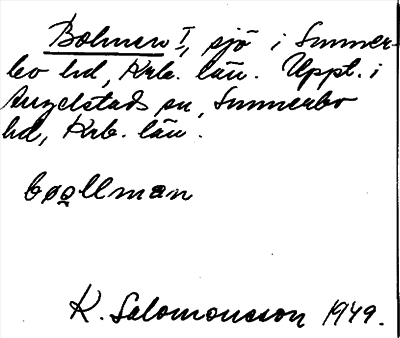 Bolmen I, sjö i Sunner-
bo hd, Krb. län. Uppt. i
Angelstads sn, Sunnerbo
hd, Krb. län.
bǫllman
K. Salomonsson 1949.